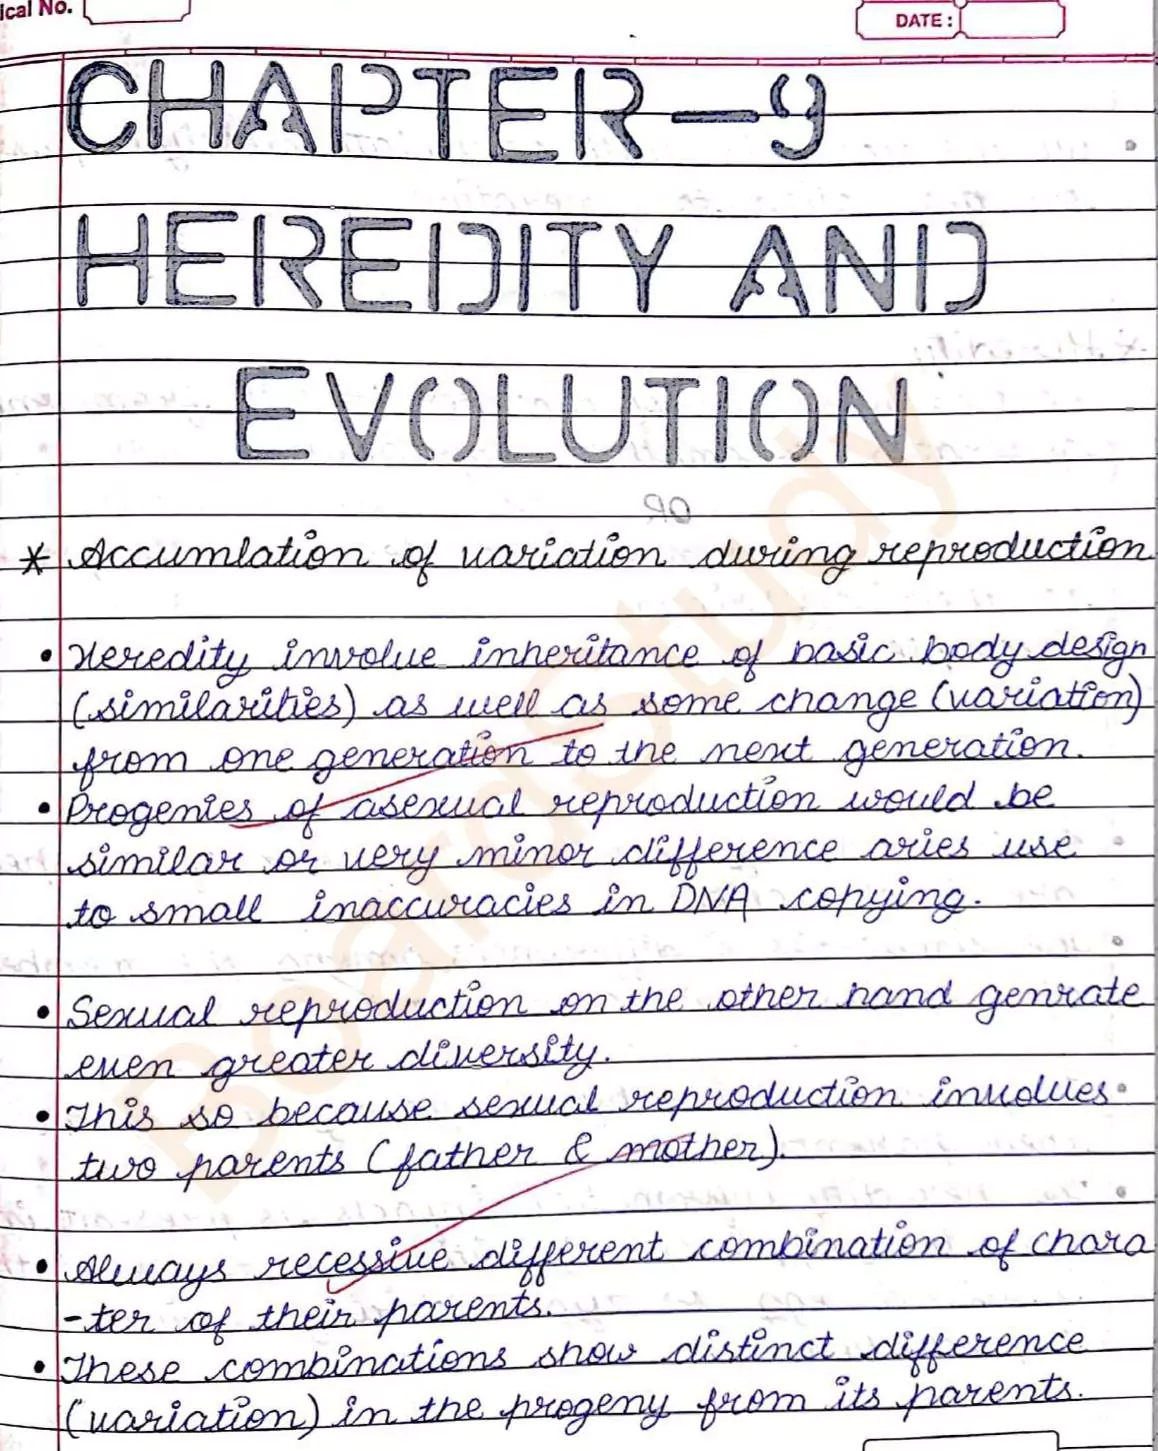 ical No.
DATE :
CHAPTER-9
HEREDITY AND
EVOLUTION
OR
* Accumlation of variation during reproduction
• Heredity involve inheritance of basic body design
(similarities) as well as some change (variation)
from one generation to the next generation.
• Progenies of asexual reproduction would be
similar or very minor difference aries use
to small inaccuracies in DNA copying.
• Sexual reproduction on the other hand genrate
even greater diversity.
• This so because sexual reproduction involves
two parents (father & mother).
• Always recessive different combination of chara
-ter of their parents.
• These combinations show distinct difference
(variation) in the progeny from its parents.
BoardStudy